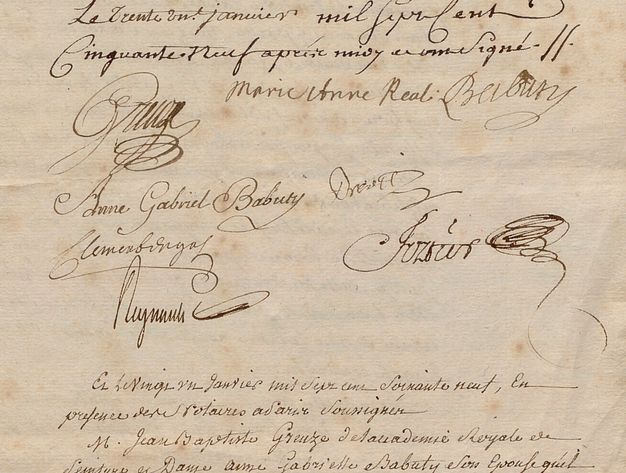 Le Trente un.e janvier mil sept Cent
Cinquante Neuf après midy et ont signé //
Marie Anne Real: Babuty
Greuze
Anne Gabriel Babuty
Reynault
Et le Vingt un Janvier mil sept cent Soixante neuf, En
presence des Notaires a Paris Soussignés
M. Jean Baptiste Greuze de l'academie Royale de
Peinture et Dame anne Gabrielle Babuty Son Epouse qu'il